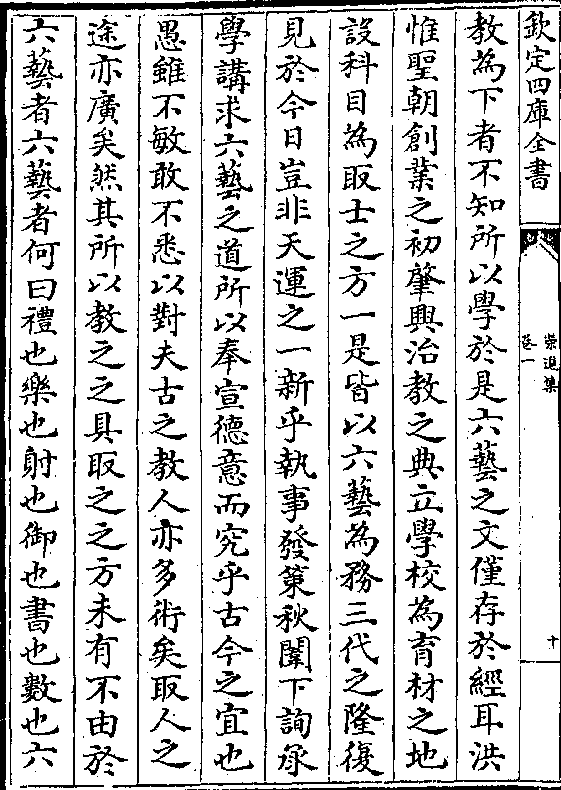 欽定四庫全書
崇進集
卷一
十
教為下者不知所以學於是六藝之文僅存於經耳洪
惟聖朝創業之初肇興治教之典立學校為育材之地
設科目為取士之方一是皆以六藝為務三代之隆復
見於今日豈非天運之一新乎執事發策秋闈下詢承
學講求六藝之道所以奉宣德意而究乎古今之宜也
愚雖不敏敢不悉以對夫古之教人亦多術矣取人之
途亦廣矣然其所以教之之具取之之方未有不由於
六藝者六藝者何曰禮也樂也射也御也書也數也六